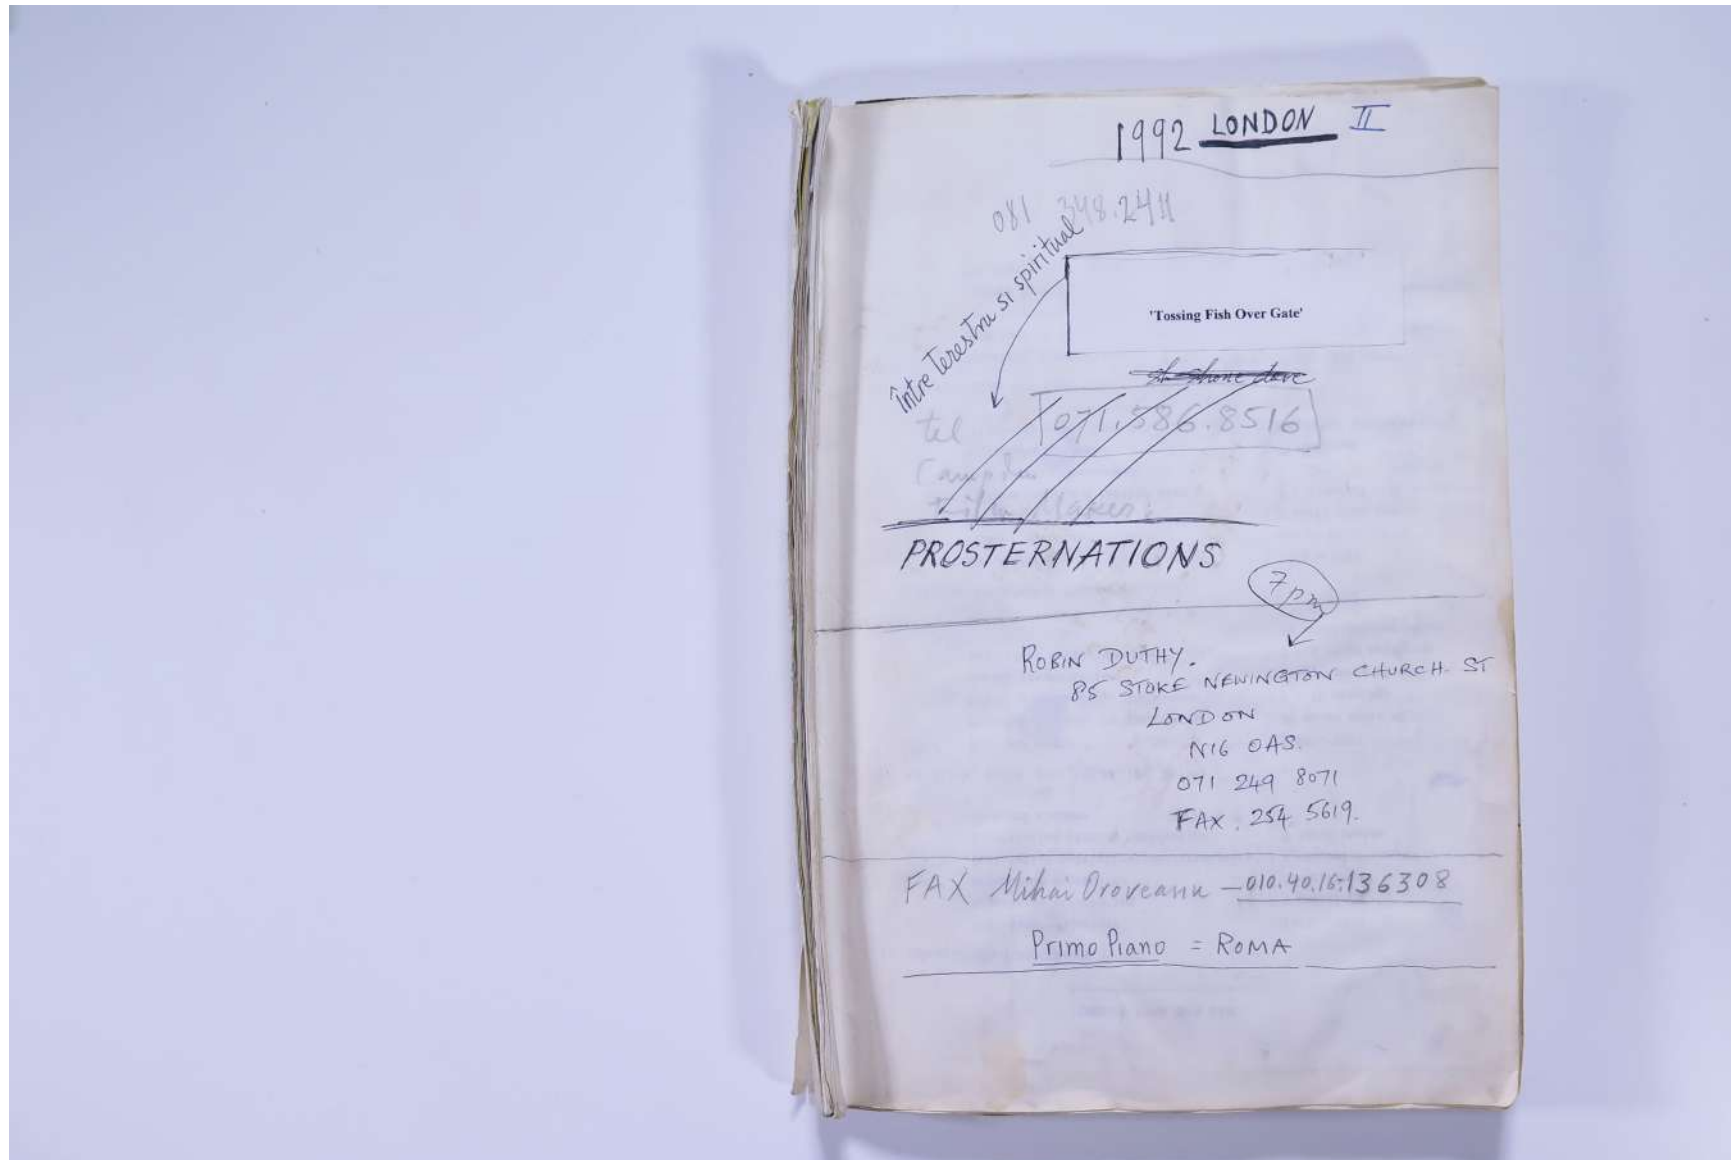 1992 LONDON II
081 348.2411
Între terestru si spiritual
'Tossing Fish Over Gate'
tel 071.586.8516
PROSTERNATIONS
7 pm
ROBIN DUTHY.
85 STOKE NEWINGTON CHURCH ST
LONDON
N16 0AS.
071 249 8071
FAX. 254 5619.
FAX Mihai Oroveanu – 010.40.16.136308
Primo Piano = ROMA